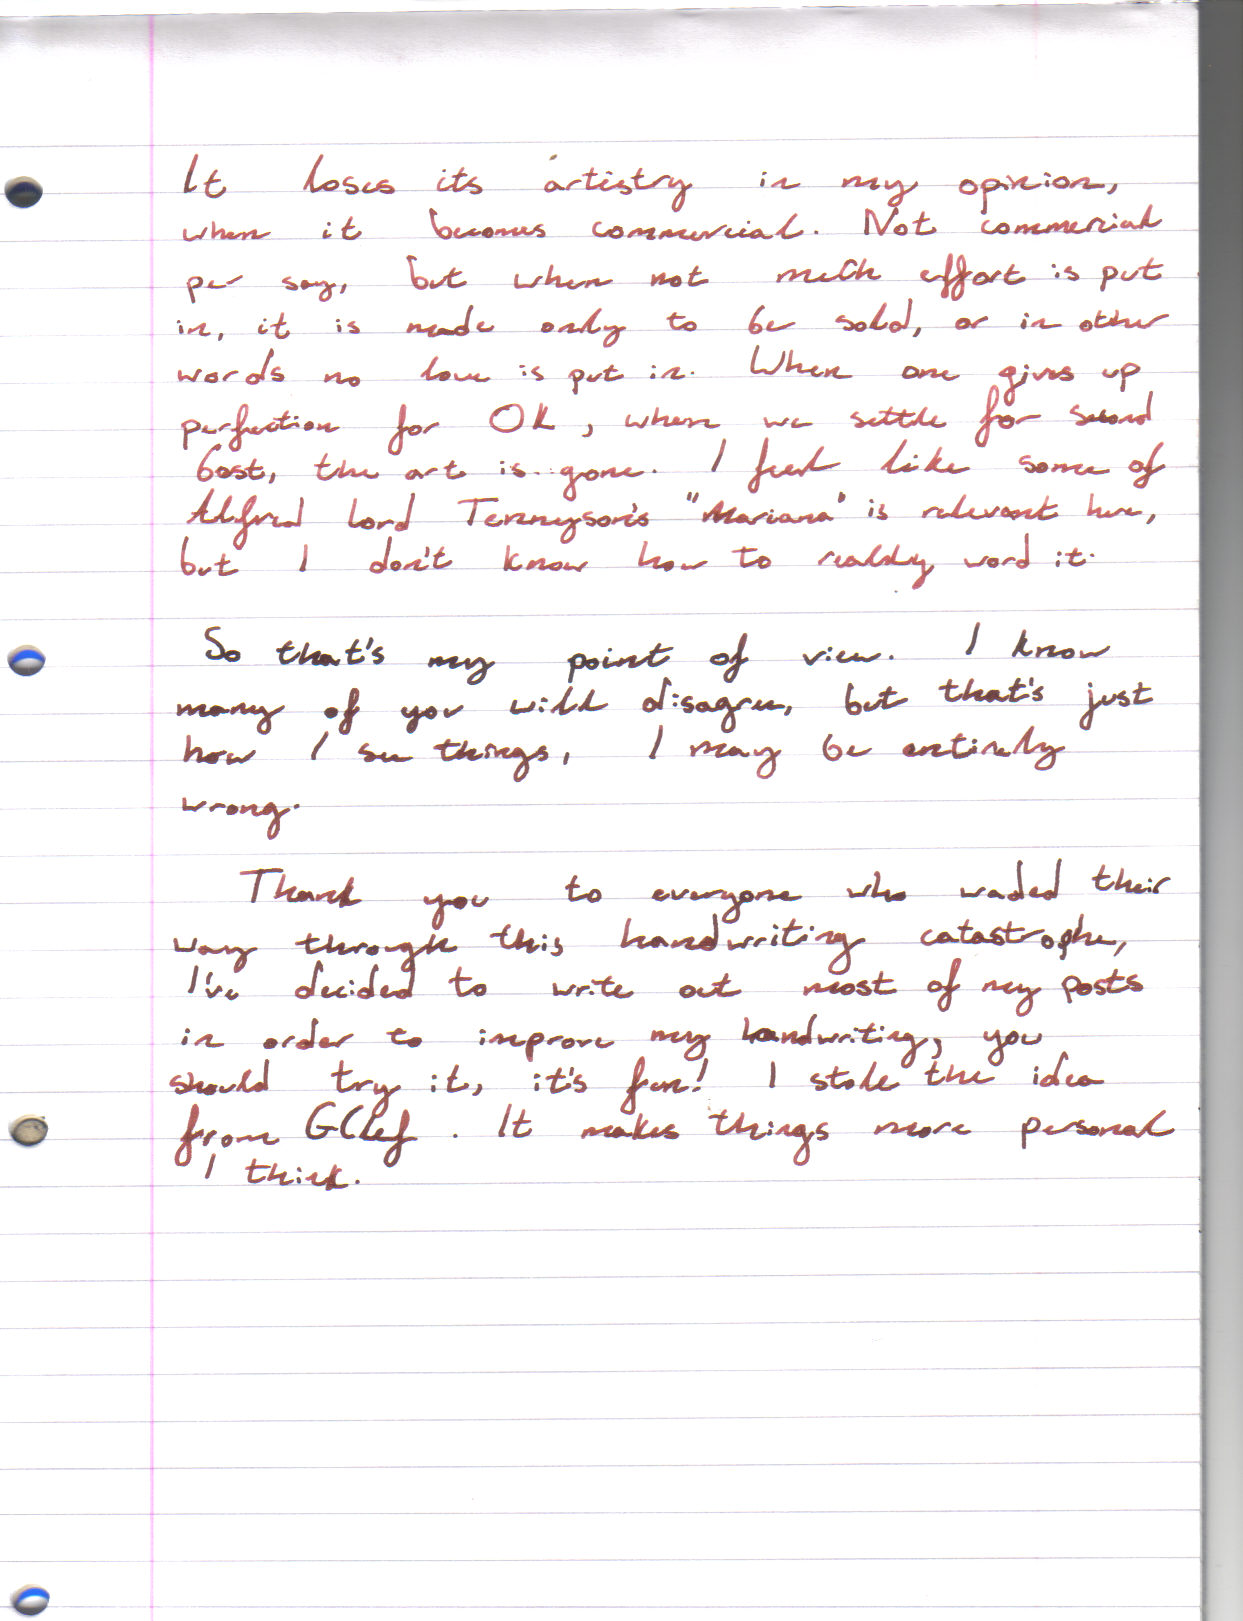 It loses its artistry in my opinion,
when it becomes commercial. Not commercial
per say, but when not much effort is put
in, it is made only to be sold, or in other
words no love is put in. When one gives up
perfection for OK, when we settle for second
best, the art is gone. I feel like some of
Alfred Lord Tennyson's "Mariana" is relevant here,
but I don't know how to really word it.
So that's my point of view. I know
many of you will disagree, but that's just
how I see things, I may be entirely
wrong.
Thank you to everyone who waded their
way through this handwriting catastrophe,
I've decided to write out most of my posts
in order to improve my handwriting, you
should try it, it's fun! I stole the idea
from GClef. It makes things more personal
I think.